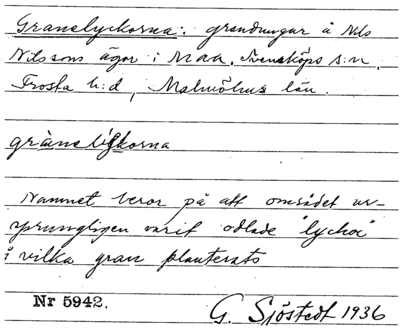 Granelyckorna: grandungar å Nils
Nilssons ägor i N:o 22, Svensköps s:n,
Frosta h:d, Malmöhus län.
gränelykkorna
Namnet beror på att området ur-
sprungligen varit odlade "lyckor"
i vilka gran planterats
Nr 5942.
G. Sjöstedt 1936